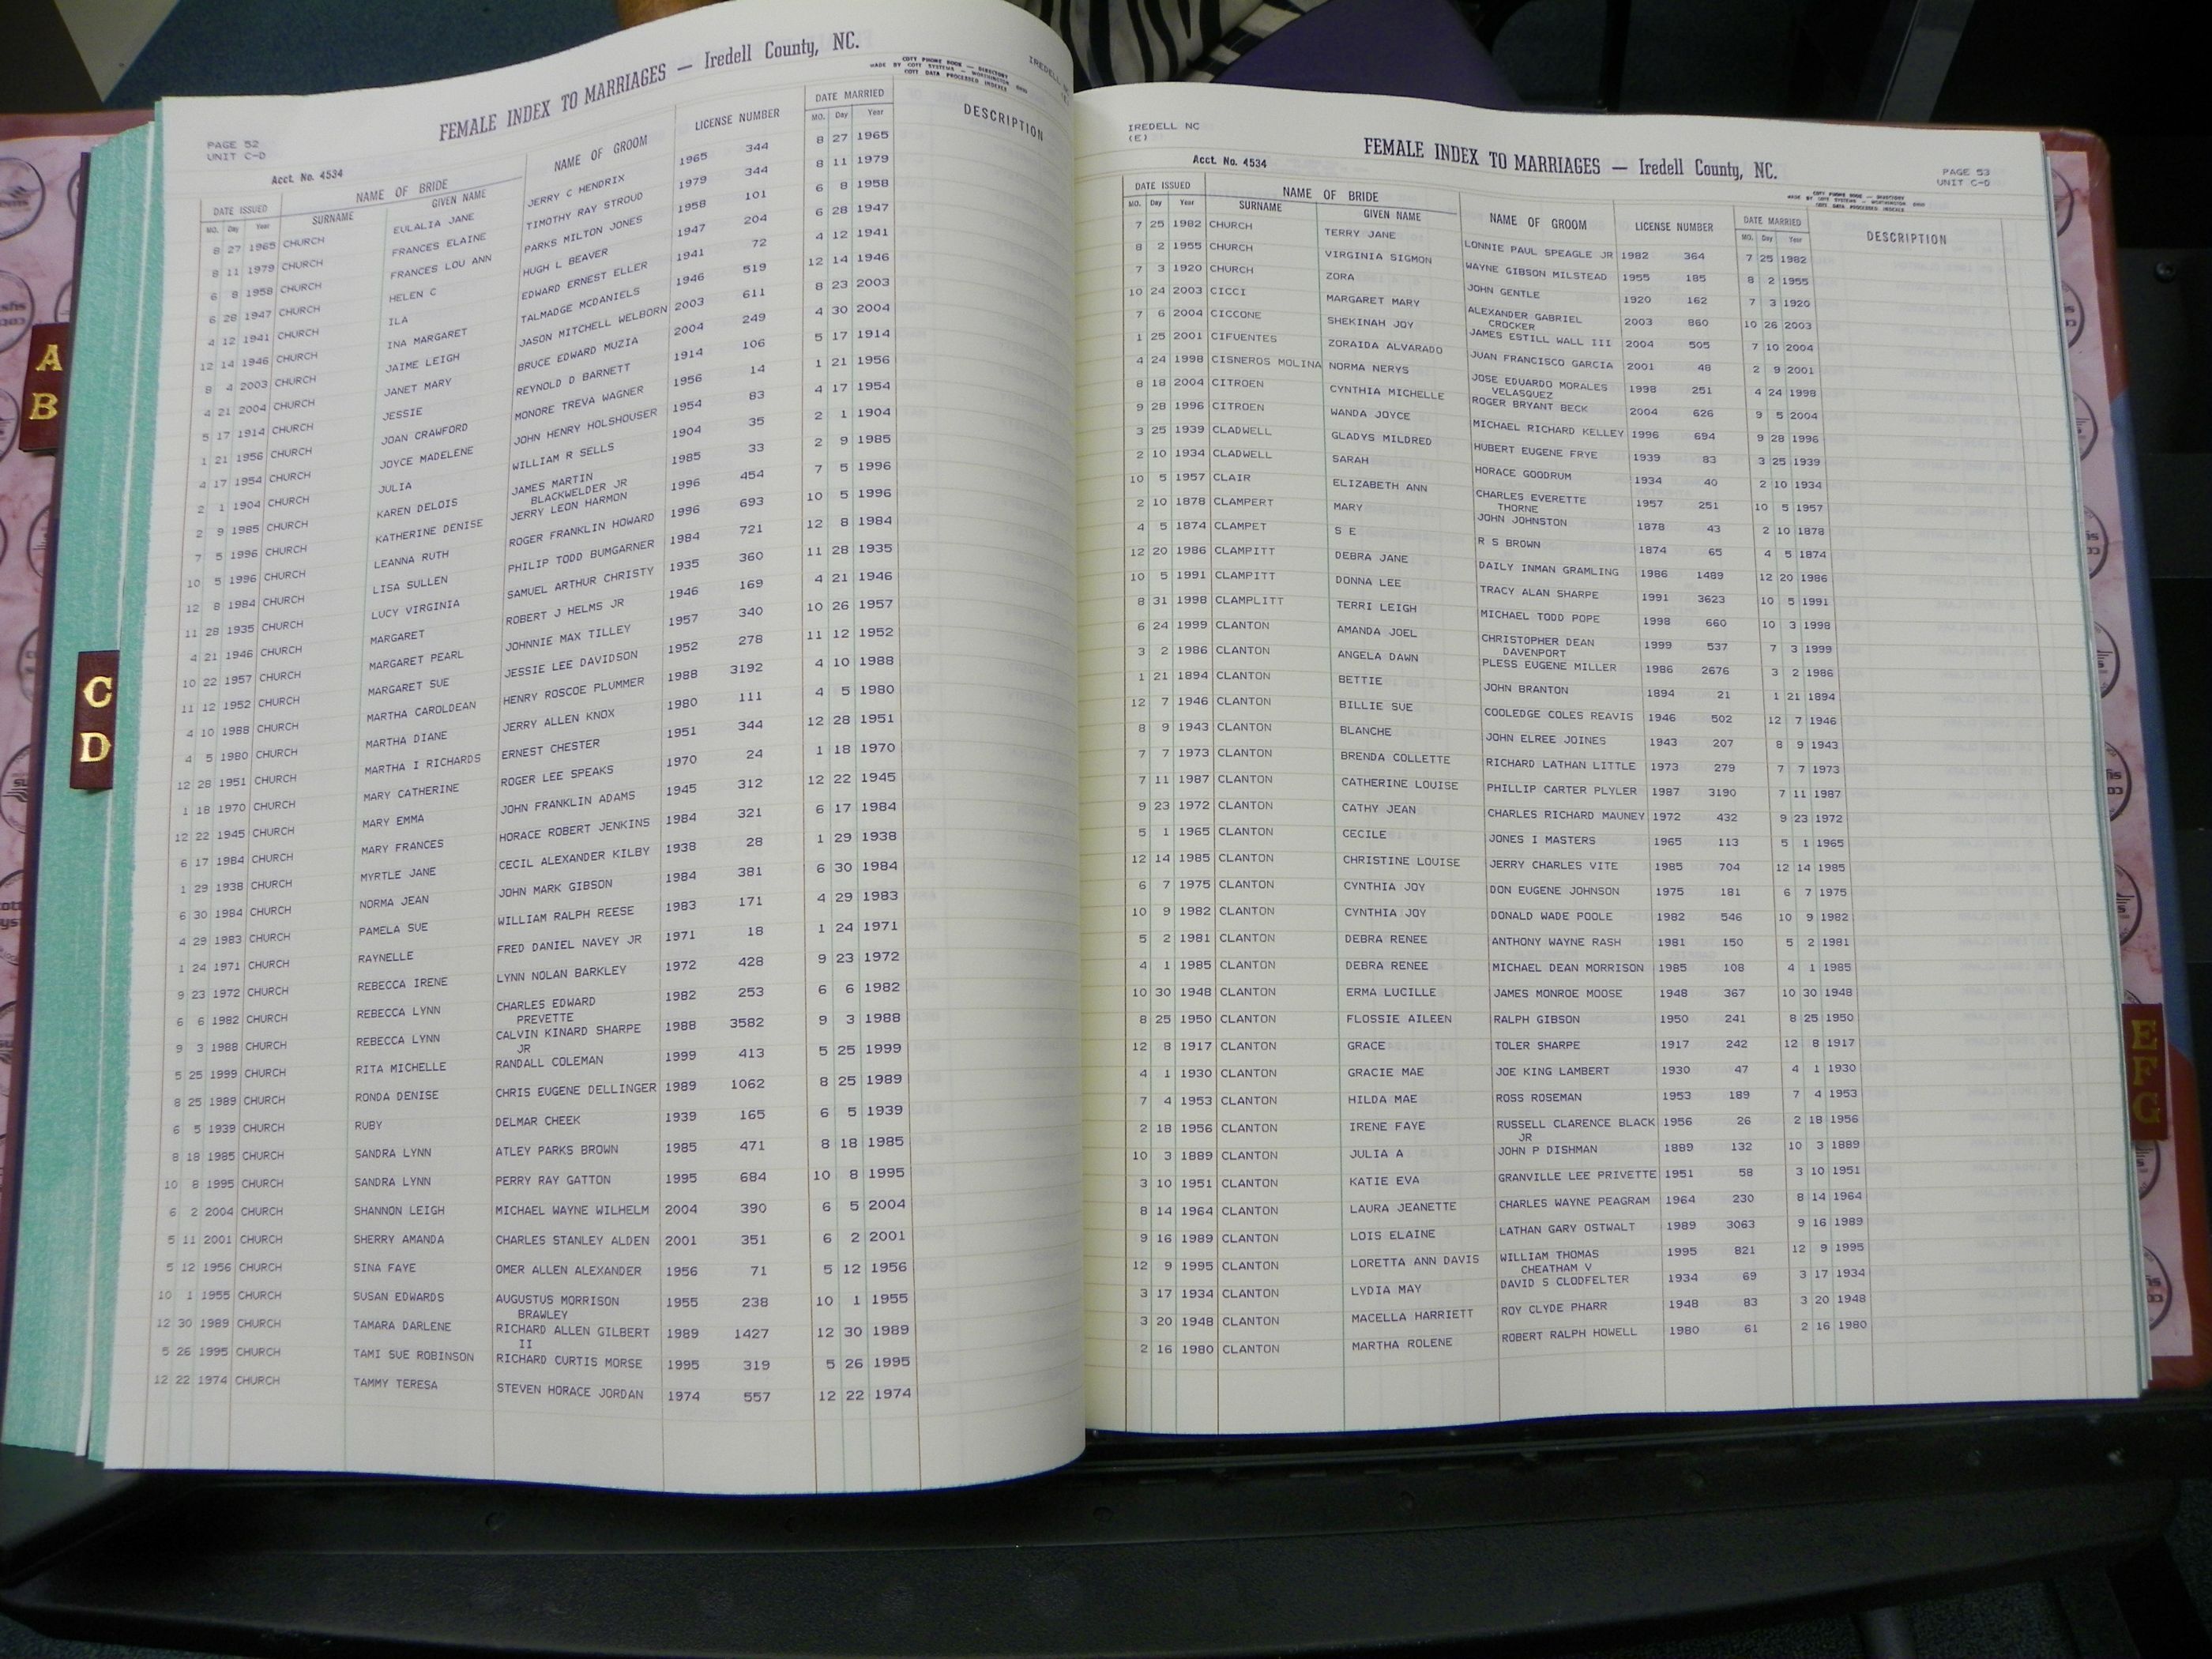 FEMALE INDEX TO MARRIAGES — Iredell County, NC.
COTT PHONE BOOK — DIRECTORY
MADE BY COTT SYSTEMS — WORTHINGTON OHIO
COTT DATA PROCESSED INDEXES
IREDELL
PAGE 52
UNIT C-D
Acct. No. 4534
DATE ISSUED NAME OF BRIDE NAME OF GROOM LICENSE NUMBER DATE MARRIED DESCRIPTION
MO. Day Year SURNAME GIVEN NAME MO. Day Year
8 27 1965 CHURCH EULALIA JANE JERRY C HENDRIX 1965 344 8 27 1965
8 11 1979 CHURCH FRANCES ELAINE TIMOTHY RAY STROUD 1979 344 8 11 1979
6 8 1958 CHURCH FRANCES LOU ANN PARKS MILTON JONES 1958 101 6 8 1958
6 28 1947 CHURCH HELEN C HUGH L BEAVER 1947 204 6 28 1947
4 12 1941 CHURCH ILA EDWARD ERNEST ELLER 1941 72 4 12 1941
12 14 1946 CHURCH INA MARGARET TALMADGE MCDANIELS 1946 519 12 14 1946
8 4 2003 CHURCH JAIME LEIGH JASON MITCHELL WELBORN 2003 611 8 23 2003
4 21 2004 CHURCH JANET MARY BRUCE EDWARD MUZIA 2004 249 4 30 2004
5 17 1914 CHURCH JESSIE REYNOLD D BARNETT 1914 106 5 17 1914
1 21 1956 CHURCH JOAN CRAWFORD MONORE TREVA WAGNER 1956 14 1 21 1956
4 17 1954 CHURCH JOYCE MADELENE JOHN HENRY HOLSHOUSER 1954 83 4 17 1954
2 1 1904 CHURCH JULIA WILLIAM R SELLS 1904 35 2 1 1904
2 9 1985 CHURCH KAREN DELOIS JAMES MARTIN 1985 33 2 9 1985
BLACKWELDER JR
7 5 1996 CHURCH KATHERINE DENISE JERRY LEON HARMON 1996 454 7 5 1996
10 5 1996 CHURCH LEANNA RUTH ROGER FRANKLIN HOWARD 1996 693 10 5 1996
12 8 1984 CHURCH LISA SULLEN PHILIP TODD BUMGARNER 1984 721 12 8 1984
11 28 1935 CHURCH LUCY VIRGINIA SAMUEL ARTHUR CHRISTY 1935 360 11 28 1935
4 21 1946 CHURCH MARGARET ROBERT J HELMS JR 1946 169 4 21 1946
10 22 1957 CHURCH MARGARET PEARL JOHNNIE MAX TILLEY 1957 340 10 26 1957
11 12 1952 CHURCH MARGARET SUE JESSIE LEE DAVIDSON 1952 278 11 12 1952
4 10 1988 CHURCH MARTHA CAROLDEAN HENRY ROSCOE PLUMMER 1988 3192 4 10 1988
4 5 1980 CHURCH MARTHA DIANE JERRY ALLEN KNOX 1980 111 4 5 1980
12 28 1951 CHURCH MARTHA I RICHARDS ERNEST CHESTER 1951 344 12 28 1951
1 18 1970 CHURCH MARY CATHERINE ROGER LEE SPEAKS 1970 24 1 18 1970
12 22 1945 CHURCH MARY EMMA JOHN FRANKLIN ADAMS 1945 312 12 22 1945
6 17 1984 CHURCH MARY FRANCES HORACE ROBERT JENKINS 1984 321 6 17 1984
1 29 1938 CHURCH MYRTLE JANE CECIL ALEXANDER KILBY 1938 28 1 29 1938
6 30 1984 CHURCH NORMA JEAN JOHN MARK GIBSON 1984 381 6 30 1984
4 29 1983 CHURCH PAMELA SUE WILLIAM RALPH REESE 1983 171 4 29 1983
1 24 1971 CHURCH RAYNELLE FRED DANIEL NAVEY JR 1971 18 1 24 1971
9 23 1972 CHURCH REBECCA IRENE LYNN NOLAN BARKLEY 1972 428 9 23 1972
6 6 1982 CHURCH REBECCA LYNN CHARLES EDWARD 1982 253 6 6 1982
PREVETTE
9 3 1988 CHURCH REBECCA LYNN CALVIN KINARD SHARPE 1988 3582 9 3 1988
JR
5 25 1999 CHURCH RITA MICHELLE RANDALL COLEMAN 1999 413 5 25 1999
8 25 1989 CHURCH RONDA DENISE CHRIS EUGENE DELLINGER 1989 1062 8 25 1989
6 5 1939 CHURCH RUBY DELMAR CHEEK 1939 165 6 5 1939
8 18 1985 CHURCH SANDRA LYNN ATLEY PARKS BROWN 1985 471 8 18 1985
10 8 1995 CHURCH SANDRA LYNN PERRY RAY GATTON 1995 684 10 8 1995
6 2 2004 CHURCH SHANNON LEIGH MICHAEL WAYNE WILHELM 2004 390 6 5 2004
5 11 2001 CHURCH SHERRY AMANDA CHARLES STANLEY ALDEN 2001 351 6 2 2001
5 12 1956 CHURCH SINA FAYE OMER ALLEN ALEXANDER 1956 71 5 12 1956
10 1 1955 CHURCH SUSAN EDWARDS AUGUSTUS MORRISON 1955 238 10 1 1955
BRAWLEY
12 30 1989 CHURCH TAMARA DARLENE RICHARD ALLEN GILBERT 1989 1427 12 30 1989
II
5 26 1995 CHURCH TAMI SUE ROBINSON RICHARD CURTIS MORSE 1995 319 5 26 1995
12 22 1974 CHURCH TAMMY TERESA STEVEN HORACE JORDAN 1974 557 12 22 1974
IREDELL NC
(E)
FEMALE INDEX TO MARRIAGES — Iredell County, NC.
PAGE 53
UNIT C-D
Acct. No. 4534
COTT PHONE BOOK — DIRECTORY
MADE BY COTT SYSTEMS — WORTHINGTON OHIO
COTT DATA PROCESSED INDEXES
DATE ISSUED NAME OF BRIDE NAME OF GROOM LICENSE NUMBER DATE MARRIED DESCRIPTION
MO. Day Year SURNAME GIVEN NAME MO. Day Year
7 25 1982 CHURCH TERRY JANE LONNIE PAUL SPEAGLE JR 1982 364 7 25 1982
8 2 1955 CHURCH VIRGINIA SIGMON WAYNE GIBSON MILSTEAD 1955 185 8 2 1955
7 3 1920 CHURCH ZORA JOHN GENTLE 1920 162 7 3 1920
10 24 2003 CICCI MARGARET MARY ALEXANDER GABRIEL 2003 860 10 26 2003
CROCKER
7 6 2004 CICCONE SHEKINAH JOY JAMES ESTILL WALL III 2004 505 7 10 2004
1 25 2001 CIFUENTES ZORAIDA ALVARADO JUAN FRANCISCO GARCIA 2001 48 2 9 2001
4 24 1998 CISNEROS MOLINA NORMA NERYS JOSE EDUARDO MORALES 1998 251 4 24 1998
VELASQUEZ
8 18 2004 CITROEN CYNTHIA MICHELLE ROGER BRYANT BECK 2004 626 9 5 2004
9 28 1996 CITROEN WANDA JOYCE MICHAEL RICHARD KELLEY 1996 694 9 28 1996
3 25 1939 CLADWELL GLADYS MILDRED HUBERT EUGENE FRYE 1939 83 3 25 1939
2 10 1934 CLADWELL SARAH HORACE GOODRUM 1934 40 2 10 1934
10 5 1957 CLAIR ELIZABETH ANN CHARLES EVERETTE 1957 251 10 5 1957
THORNE
2 10 1878 CLAMPERT MARY JOHN JOHNSTON 1878 43 2 10 1878
4 5 1874 CLAMPET S E R S BROWN 1874 65 4 5 1874
12 20 1986 CLAMPITT DEBRA JANE DAILY INMAN GRAMLING 1986 1489 12 20 1986
10 5 1991 CLAMPITT DONNA LEE TRACY ALAN SHARPE 1991 3623 10 5 1991
8 31 1998 CLAMPLITT TERRI LEIGH MICHAEL TODD POPE 1998 660 10 3 1998
6 24 1999 CLANTON AMANDA JOEL CHRISTOPHER DEAN 1999 537 7 3 1999
DAVENPORT
3 2 1986 CLANTON ANGELA DAWN PLESS EUGENE MILLER 1986 2676 3 2 1986
1 21 1894 CLANTON BETTIE JOHN BRANTON 1894 21 1 21 1894
12 7 1946 CLANTON BILLIE SUE COOLEDGE COLES REAVIS 1946 502 12 7 1946
8 9 1943 CLANTON BLANCHE JOHN ELREE JOINES 1943 207 8 9 1943
7 7 1973 CLANTON BRENDA COLLETTE RICHARD LATHAN LITTLE 1973 279 7 7 1973
7 11 1987 CLANTON CATHERINE LOUISE PHILLIP CARTER PLYLER 1987 3190 7 11 1987
9 23 1972 CLANTON CATHY JEAN CHARLES RICHARD MAUNEY 1972 432 9 23 1972
5 1 1965 CLANTON CECILE JONES I MASTERS 1965 113 5 1 1965
12 14 1985 CLANTON CHRISTINE LOUISE JERRY CHARLES VITE 1985 704 12 14 1985
6 7 1975 CLANTON CYNTHIA JOY DON EUGENE JOHNSON 1975 181 6 7 1975
10 9 1982 CLANTON CYNTHIA JOY DONALD WADE POOLE 1982 546 10 9 1982
5 2 1981 CLANTON DEBRA RENEE ANTHONY WAYNE RASH 1981 150 5 2 1981
4 1 1985 CLANTON DEBRA RENEE MICHAEL DEAN MORRISON 1985 108 4 1 1985
10 30 1948 CLANTON ERMA LUCILLE JAMES MONROE MOOSE 1948 367 10 30 1948
8 25 1950 CLANTON FLOSSIE AILEEN RALPH GIBSON 1950 241 8 25 1950
12 8 1917 CLANTON GRACE TOLER SHARPE 1917 242 12 8 1917
4 1 1930 CLANTON GRACIE MAE JOE KING LAMBERT 1930 47 4 1 1930
7 4 1953 CLANTON HILDA MAE ROSS ROSEMAN 1953 189 7 4 1953
2 18 1956 CLANTON IRENE FAYE RUSSELL CLARENCE BLACK 1956 26 2 18 1956
JR
10 3 1889 CLANTON JULIA A JOHN P DISHMAN 1889 132 10 3 1889
3 10 1951 CLANTON KATIE EVA GRANVILLE LEE PRIVETTE 1951 58 3 10 1951
8 14 1964 CLANTON LAURA JEANETTE CHARLES WAYNE PEAGRAM 1964 230 8 14 1964
9 16 1989 CLANTON LOIS ELAINE LATHAN GARY OSTWALT 1989 3063 9 16 1989
12 9 1995 CLANTON LORETTA ANN DAVIS WILLIAM THOMAS 1995 821 12 9 1995
CHEATHAM V
3 17 1934 CLANTON LYDIA MAY DAVID S CLODFELTER 1934 69 3 17 1934
3 20 1948 CLANTON MACELLA HARRIETT ROY CLYDE PHARR 1948 83 3 20 1948
2 16 1980 CLANTON MARTHA ROLENE ROBERT RALPH HOWELL 1980 61 2 16 1980
A
B
C
D
E
F
G